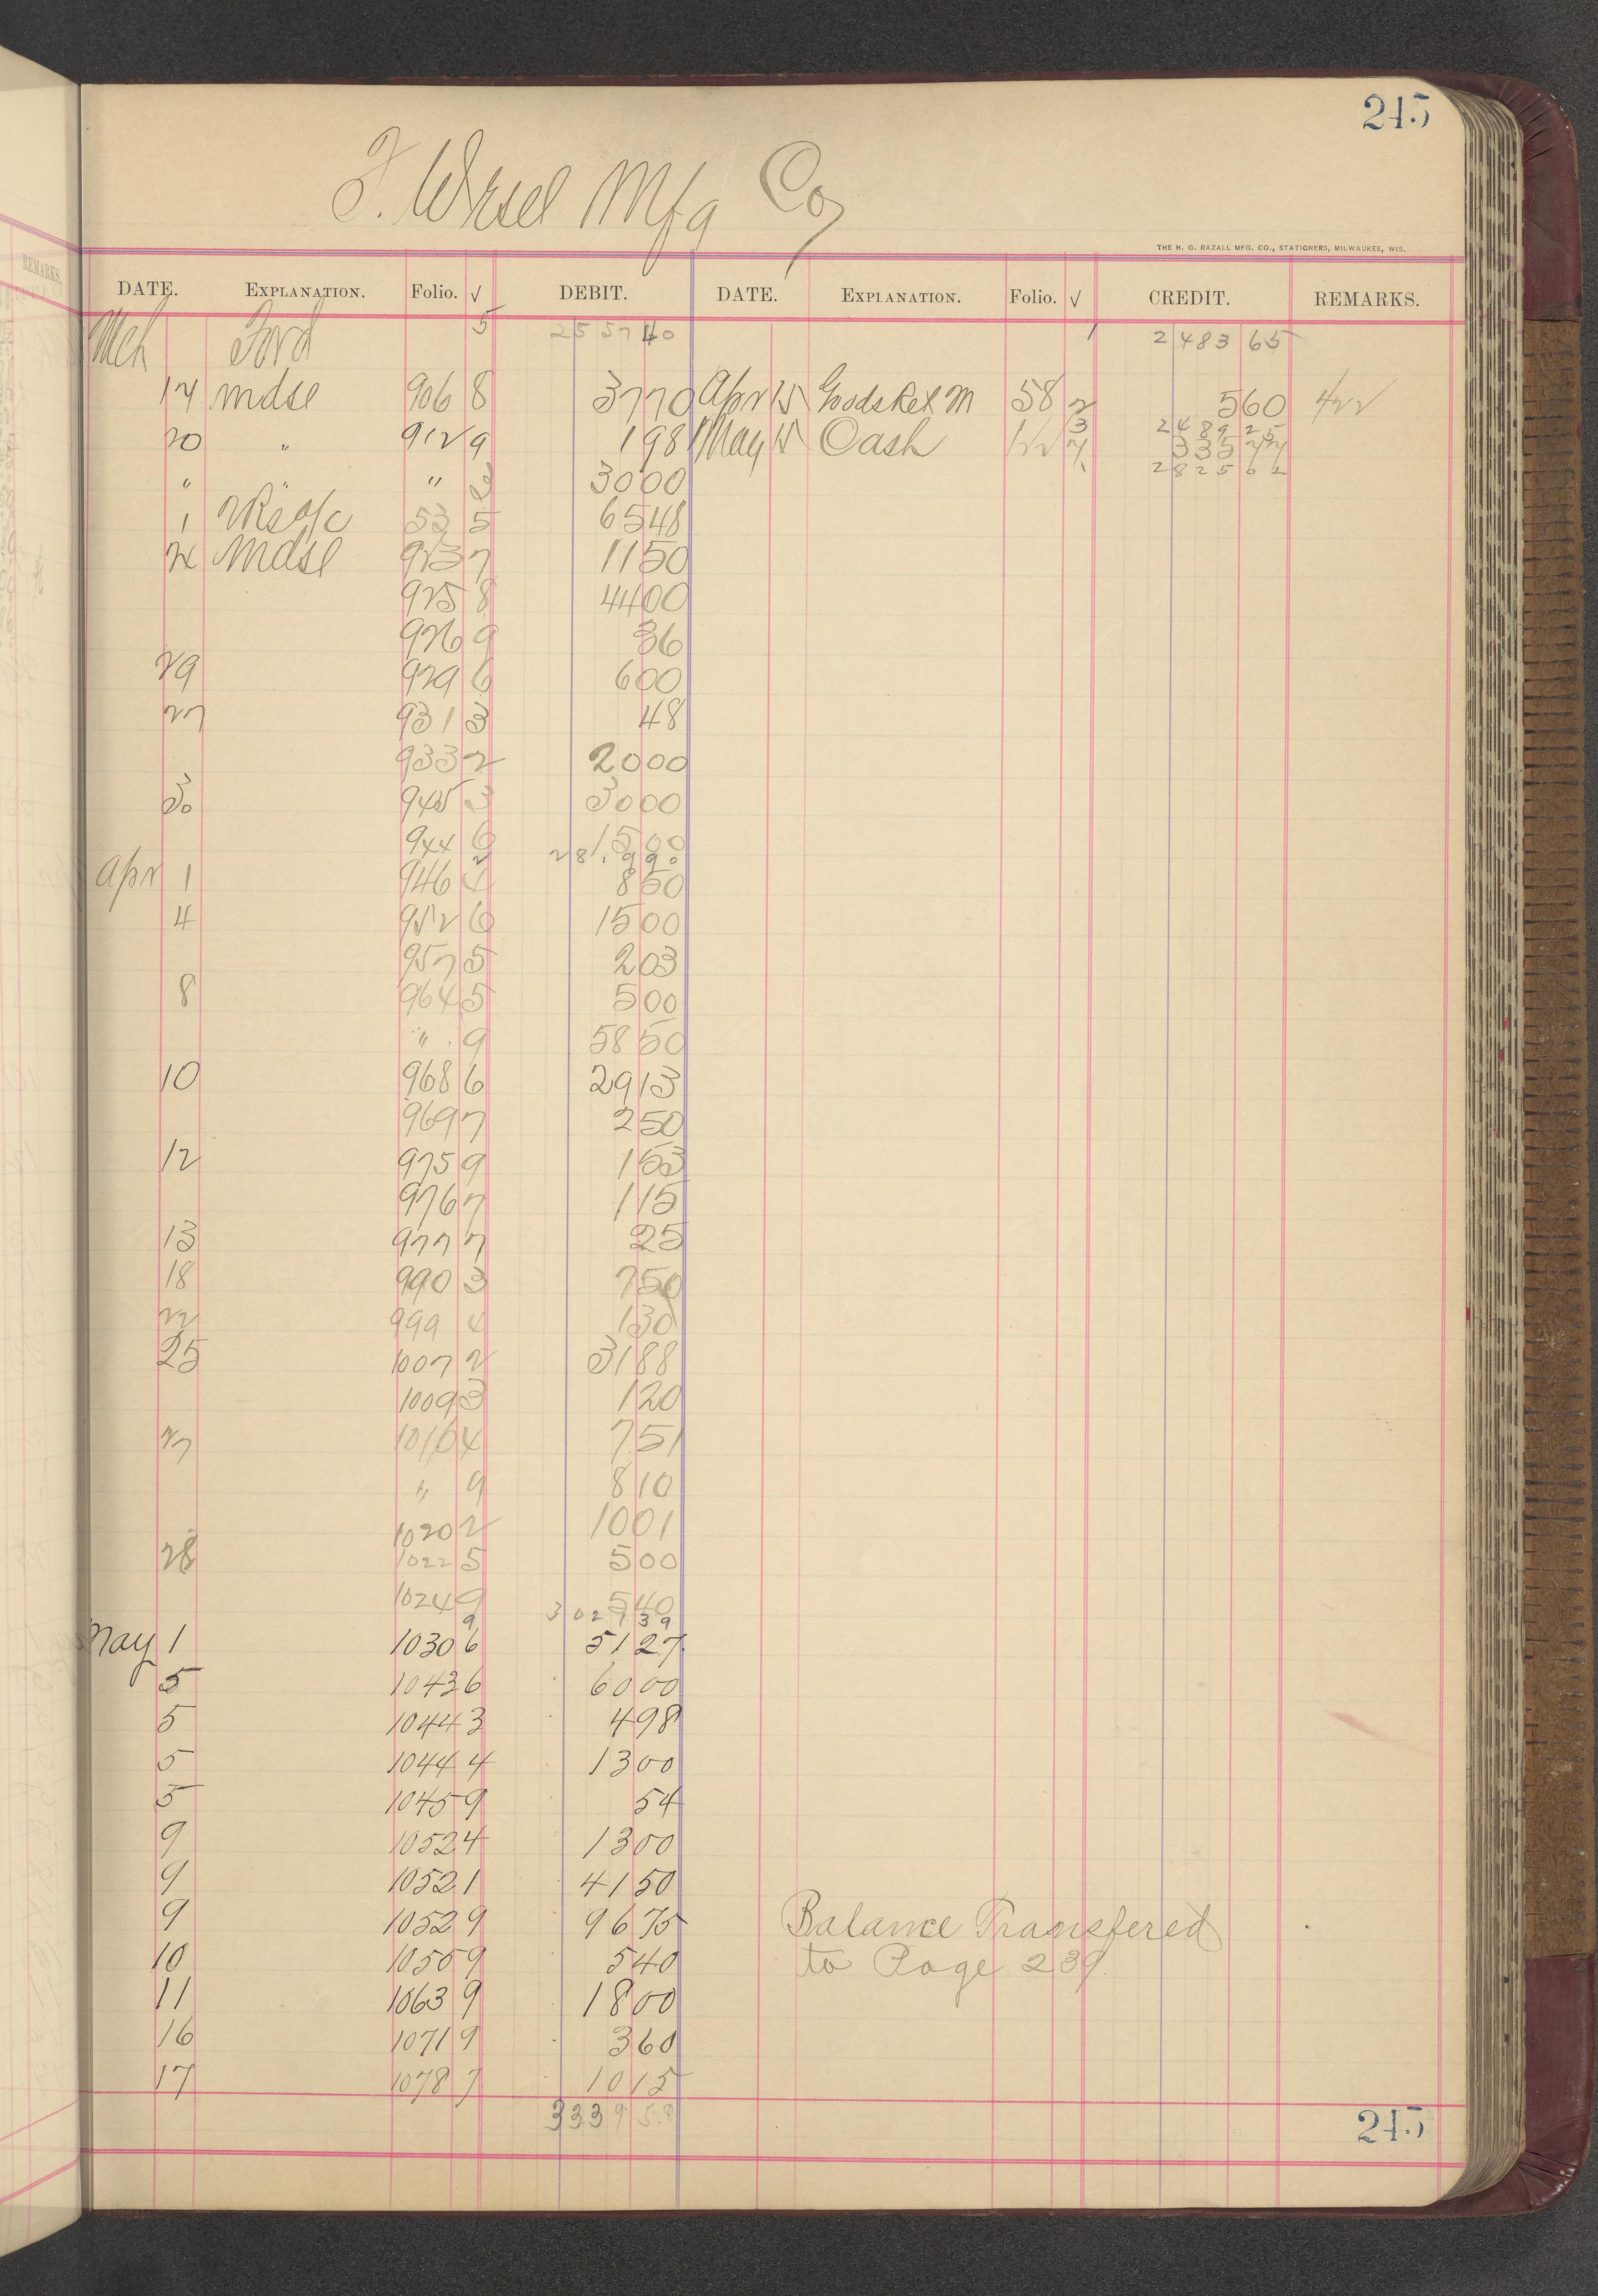 245
F. Wesel Mfg Co
THE H. G. RAZALL MFG. CO., STATIONERS, MILWAUKEE, WIS.
DATE. EXPLANATION. Folio. √ DEBIT. DATE. EXPLANATION. Folio. √ CREDIT. REMARKS.
Mch Ford 5 2557 40 1 2483 65
14 Mdse 906 8 3770 Apr 15 Goods Ret M 58 2 560 422
3 2489 25
20 " 912 9 198 May 15 Cash 122 7
" " " 3000
1 53 5 6548
Mdse 913 7 1150
925 8 4400
926 9 36
29 929 6 600
27 931 3 48
933 2 2000
30 945 3 3000
944 6 1500
281990
Apr 1 946 4 850
4 952 6 1500
957 5 203
8 964 5 500
" 9 5850
10 968 6 2913
969 7 250
12 975 9 153
976 7 115
13 977 7 25
18 990 3 750
22 999 4 130
25 1007 2 3188
1009 3 120
27 1016 4 751
" 9 810
1020 2 1001
28 1022 5 500
1024 9 540
9 302739
May 1 1030 6 5127
5 1043 6 6000
5 1044 3 498
5 1044 4 1300
5 1045 9 54
9 1052 4 1300
9 1052 1 4150
9 1052 9 9675 Balance Transfered
10 1055 9 540 to Page 239
11 1063 9 1800
16 1071 9 360
17 1078 7 1015
3339 58
245